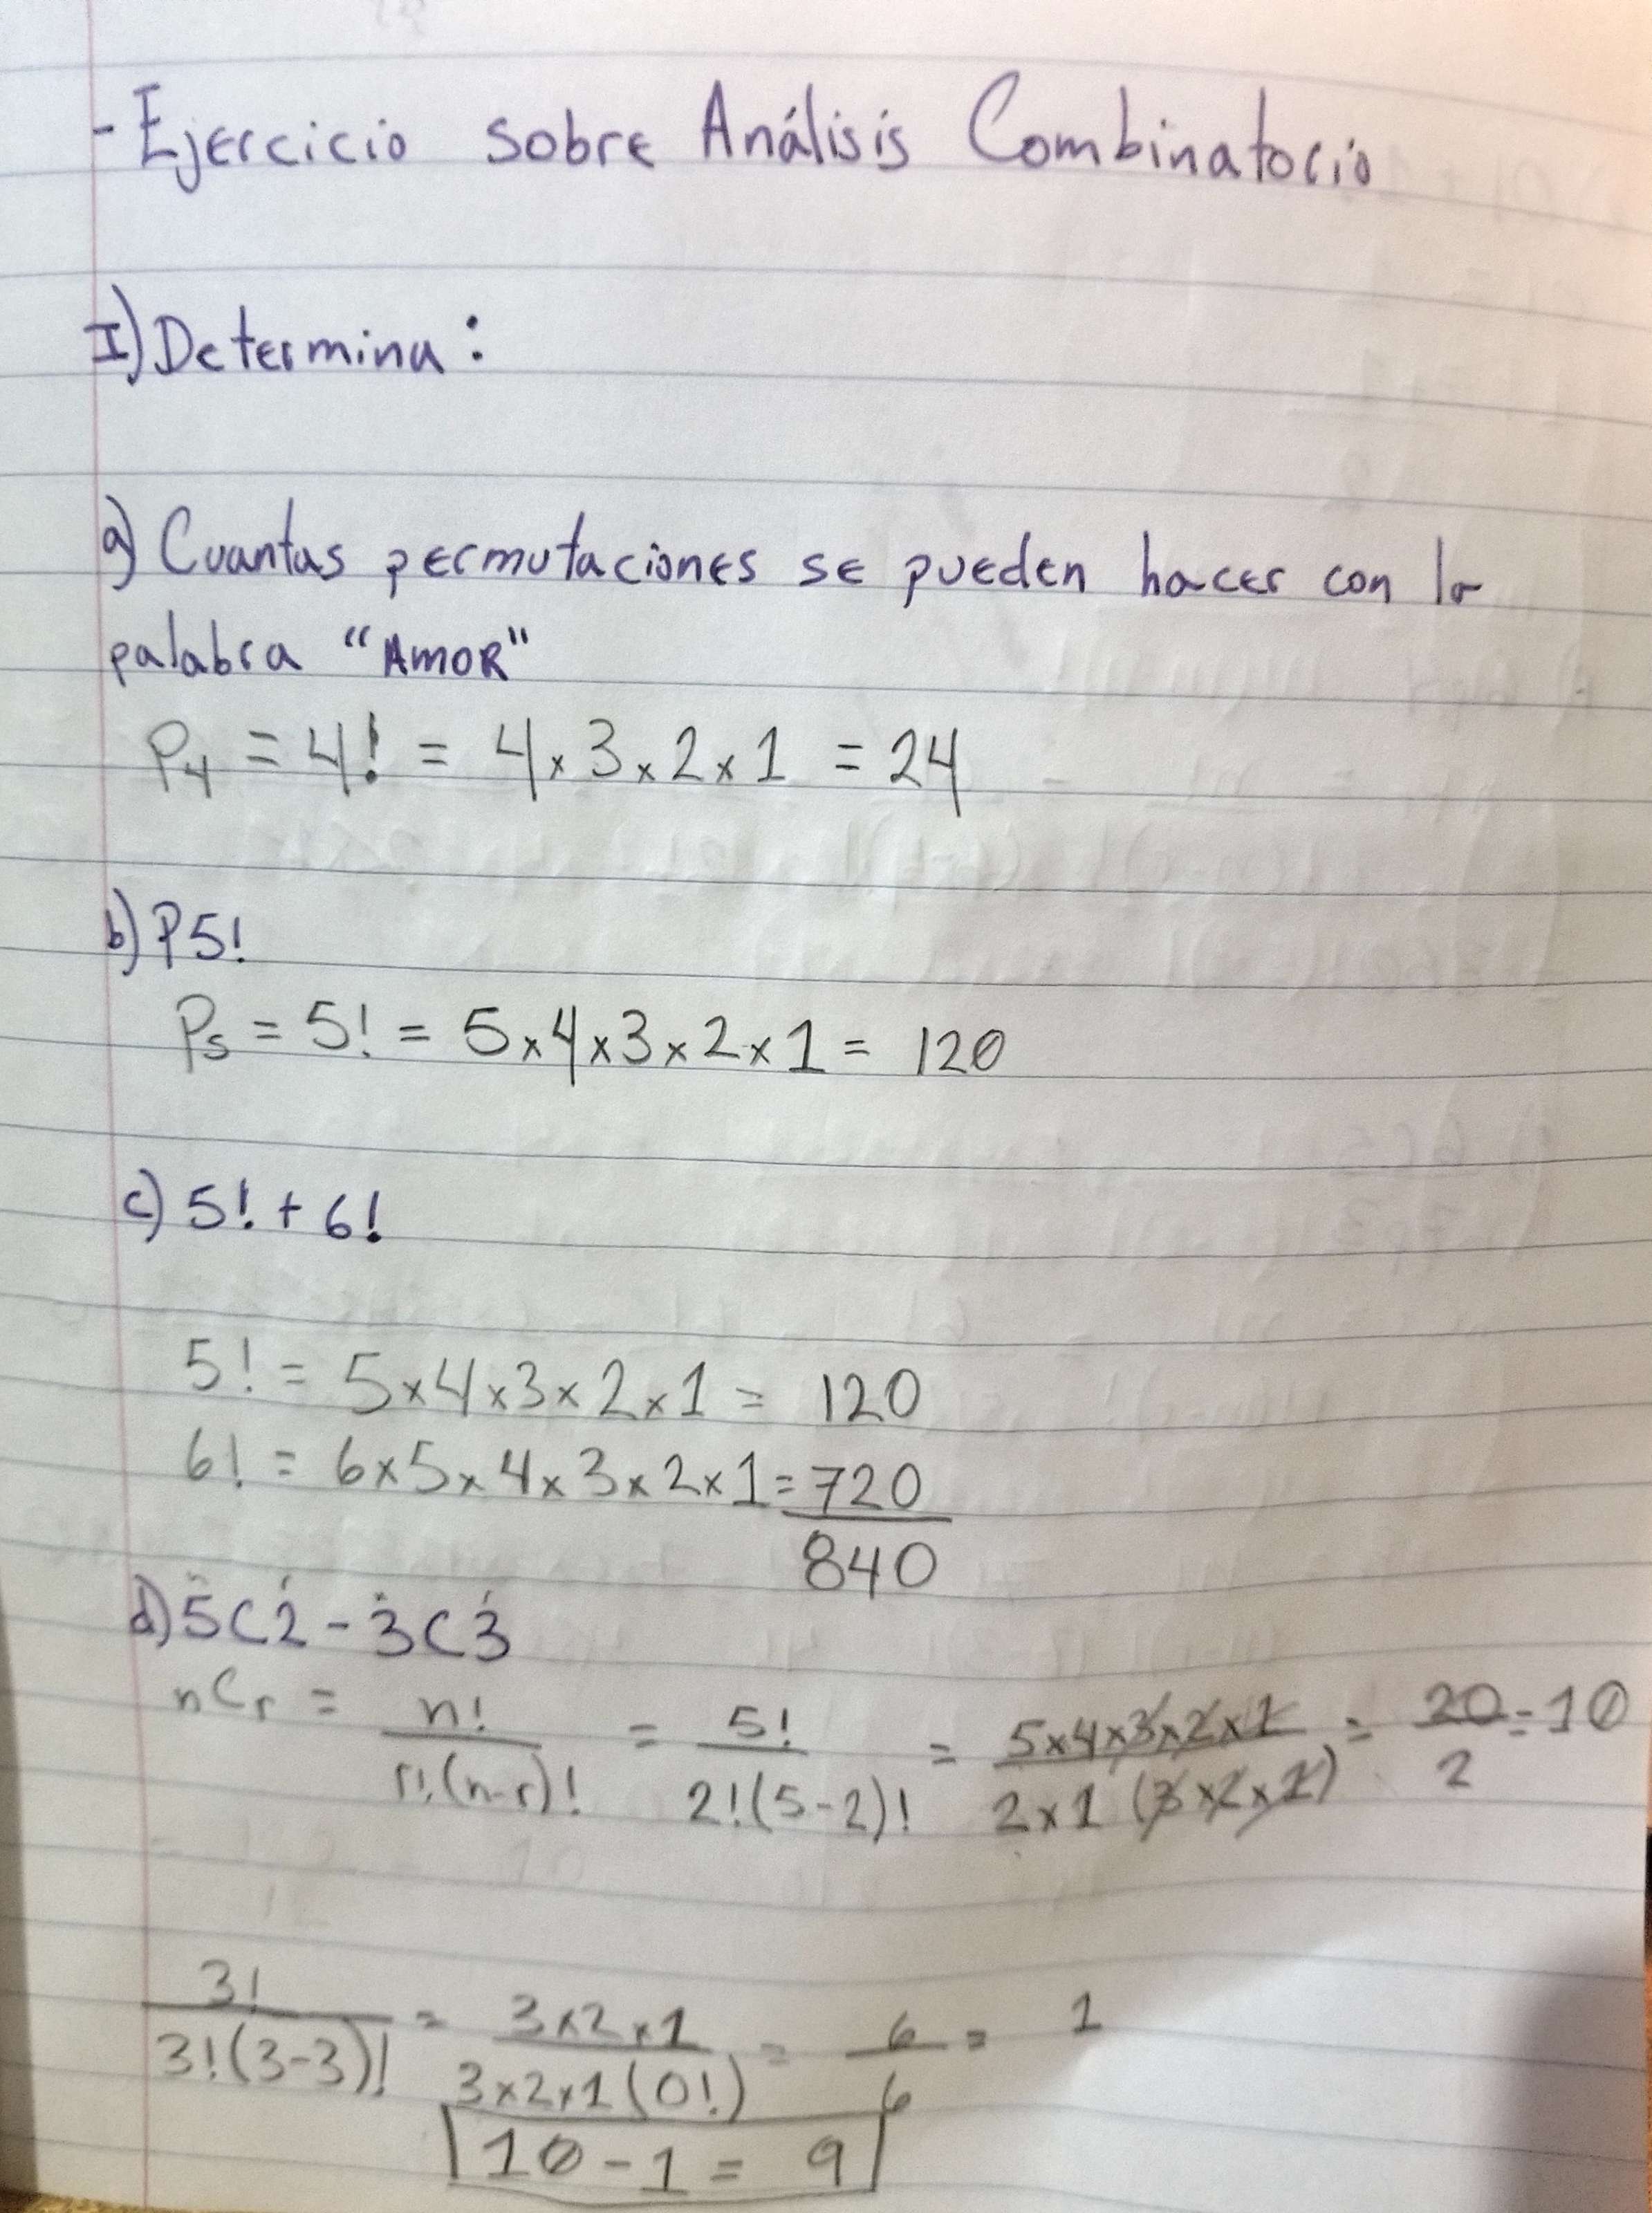 - Ejercicio sobre Análisis Combinatorio
I) Determina:
a) Cuantas permutaciones se pueden hacer con la
palabra "AMOR"
P4 = 4! = 4x3x2x1 = 24
b) P5!
P5 = 5! = 5x4x3x2x1 = 120
c) 5! + 6!
5! = 5x4x3x2x1 = 120
6! = 6x5x4x3x2x1 = 720
840
d) 5C2 - 3C3
nCr = n!/r!(n-r)! = 5!/2!(5-2)! = 5x4x3x2x1/2x1(3x2x1) = 20/2 = 10
3!/3!(3-3)! = 3x2x1/3x2x1(0!) = 6/6 = 1
10 - 1 = 9